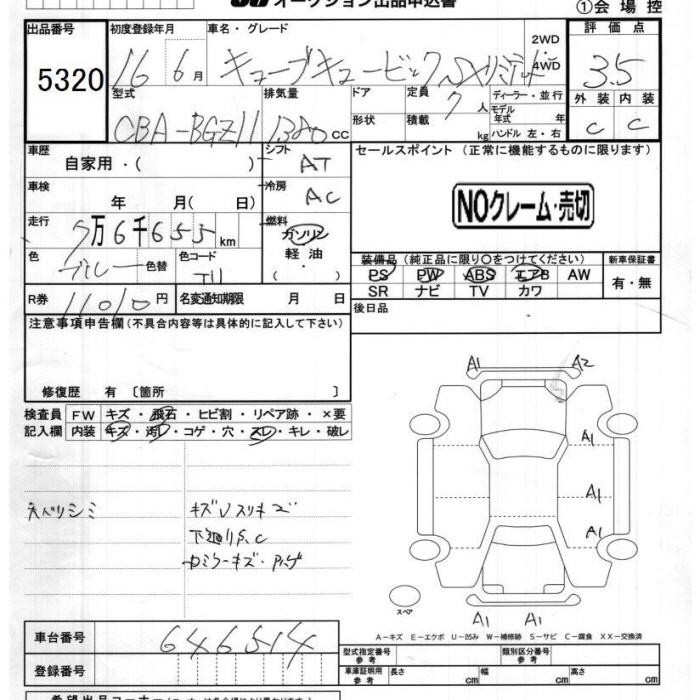 オークション出品申込書 ①会場控
出品番号 初度登録年月 車名・グレード 2WD ・ 4WD 評価点
5320 16 6月 キューブキュービック SXリミテッド 3.5
外装 内装
C C
型式 排気量 ドア 定員 7人 ディーラー・並行
モデル年式 年
CBA-BGZ11 1380cc 形状 積載 kg ハンドル 左・右
車歴 シフト セールスポイント (正常に機能するものに限ります)
自家用・( ) AT
車検 冷房
年 月( 日) AC NOクレーム・売切
走行 5万6千655km 燃料 ガソリン
色 ブルー 色替 色コード 軽油
・ ( )
装備品 (純正品に限り○をつけてください) 新車保証書
PS PW ABS エアB AW 有・無
SR ナビ TV カワ
R券 11010円 名変通知期限 月 日
後日品
注意事項申告欄(不具合内容等は具体的に記入して下さい)
修復歴 有 〔箇所 〕
検査員 FW キズ・飛石・ヒビ割・リペア跡・×要
記入欄 内装 キズ・汚れ・コゲ・穴・スレ・キレ・破レ
A1 A2
A1
A1
A1
天ベリシミ キズVスリキズ
下廻りS.C
ロミラーキズ・Pハゲ
スペア
A1 A1
A-キズ E-エクボ U-凹み W-補修跡 S-サビ C-腐食 XX-交換済
車台番号 646514
型式指定番号 参考 類別区分番号 参考
登録番号 車庫証明用 参考 長さ cm 幅 cm 高さ cm
希望出品コーナー